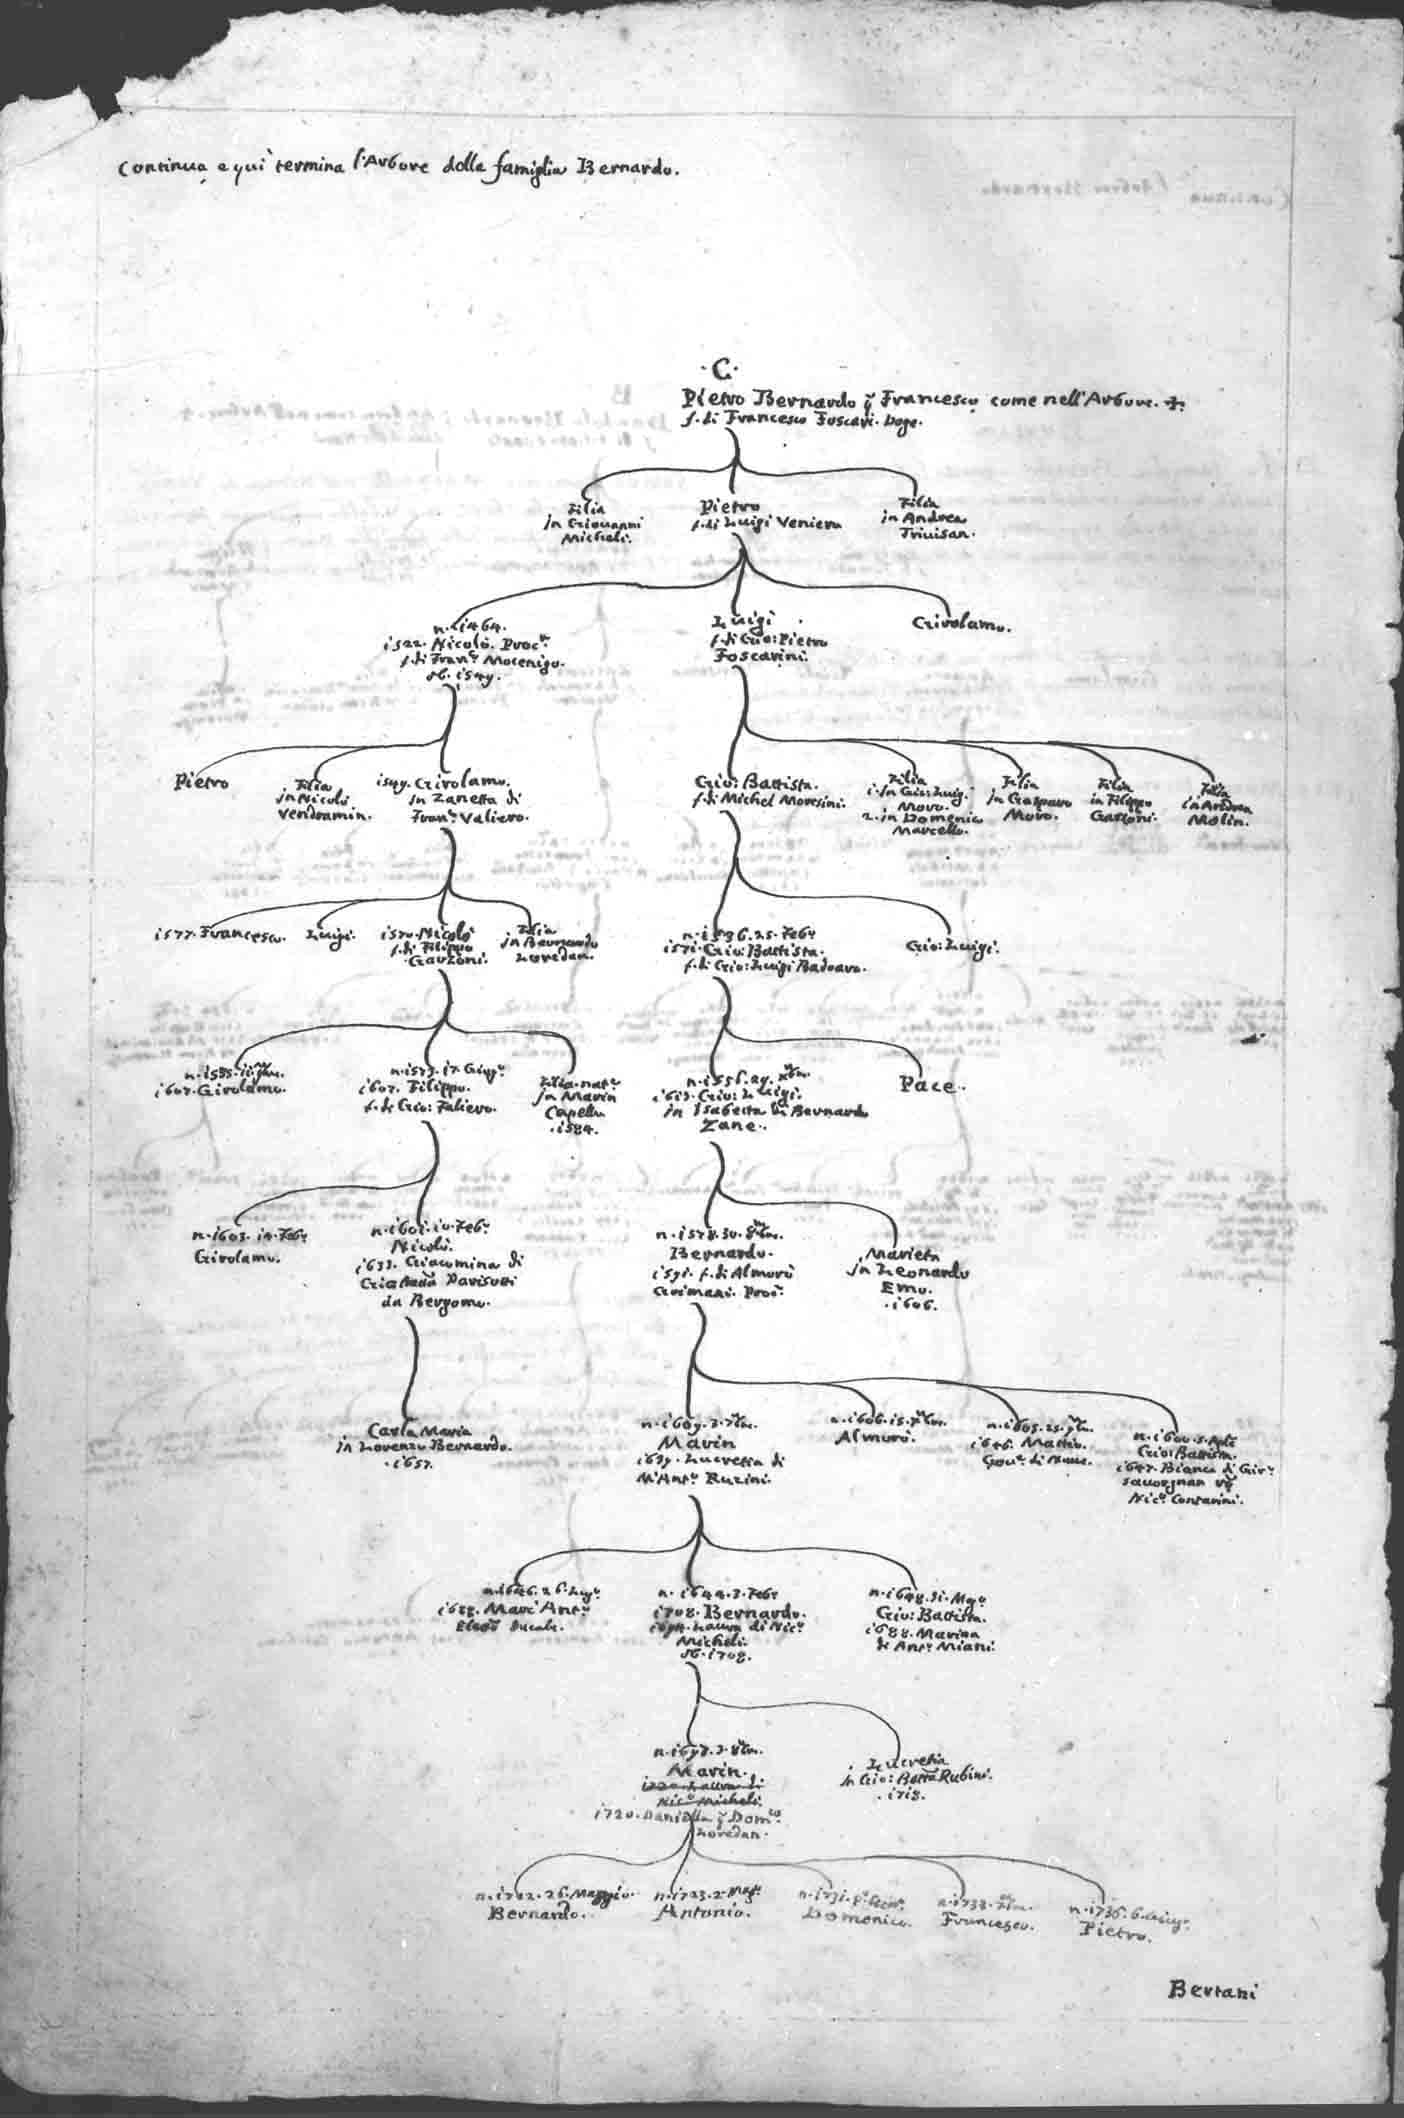 Continua e qui termina l'Arbore della famiglia Bernardo.
.C.
Pietro Bernardo q̃ Francesco come nell'Arbore.
f. di Francesco Foscari Doge.
Filia
in Giovanni
Micheli.
Pietro
f. di Luigi Veniera
Filia
in Andrea
Trivisan.
n. 1464.
1522. Nicolò. Procr.
f. di Franc.o Mocenigo.
ob. 1549.
Luigi
f. di Gio: Pietro
Foscarini.
Girolamo.
Pietro
Filia
in Nicolò
Vendramin.
1549. Girolamo.
in Zanetta di
Franc.o Valiero.
Gio: Battista.
f. di Michel Moresini.
Filia
1. in Gio: Luigi
Moro.
2. in Domenico
Marcello.
Filia
in Gasparo
Moro.
Filia
in Filippo
Garzoni.
Filia
in Andrea
Molin.
1577. Francesco.
Luigi.
1570. Nicolò
f. di Filippo
Garzoni.
Filia
in Bernardo
Loredan.
n. 1536. 25. Febr
1571. Gio: Battista.
f. di Gio: Luigi Badoaro.
Gio: Luigi.
1607. Girolamo.
n. 1573. 17. Giug.o
1607. Filippo.
f. di Gio: Faliero.
Filia nat.
in Marin
Capello
. 1584.
n. 1556. 29.
1613. Gio: Luigi.
in Isabetta di Bernardo
Zane.
Pace.
n. 1603. 14. Febr
Girolamo.
n. 1601. 10. Febr
Nicolò.
1633. Giacomina di
Parisotti
da Bergomo.
n. 1578. 30. 8bre.
Bernardo.
1591. f. di Almorò
Grimani. Procr.
Marieta
in Leonardo
Emo.
. 1606.
Carla Maria
in Lorenzo Bernardo.
. 1657.
n. 1609. 3. 7bre.
Marin
1639. Lucretia di
M. Ant.o Ruzini.
n. 1606. 15.
Almorò.
n. 1605. 25.
1646. Mattio.
Gov.r di Nave.
n. 1600. 5. Aple
Gio: Battista.
1647. Bianca di Gir.o
Savorgnan
Nic.o Contarini.
n. 1646. 26. Lug.o
Marc'Ant.o
Ducale.
n. 1644. 3. Febr
1708. Bernardo.
Laura di Nic.o
Micheli.
ob. 1708.
n. 1648. 31. Mag.o
Gio: Battista.
1688. Marina
di Ant.o Miani.
n. 1697. 3. 8bre.
Marin.
1720. Laura di
Nic.o Micheli.
1720. Daniella q̃ Dom.co
Loredan.
Lucretia
in Gio: Batta Rubini.
. 1715.
n. 1722. 26. Maggio.
Bernardo.
n. 1723. 2. Mag.o
Antonio.
n. 1731. P.o
Domenico.
n. 1733.
Francesco.
n. 1736. 6. Giug.o
Pietro.
Bertani